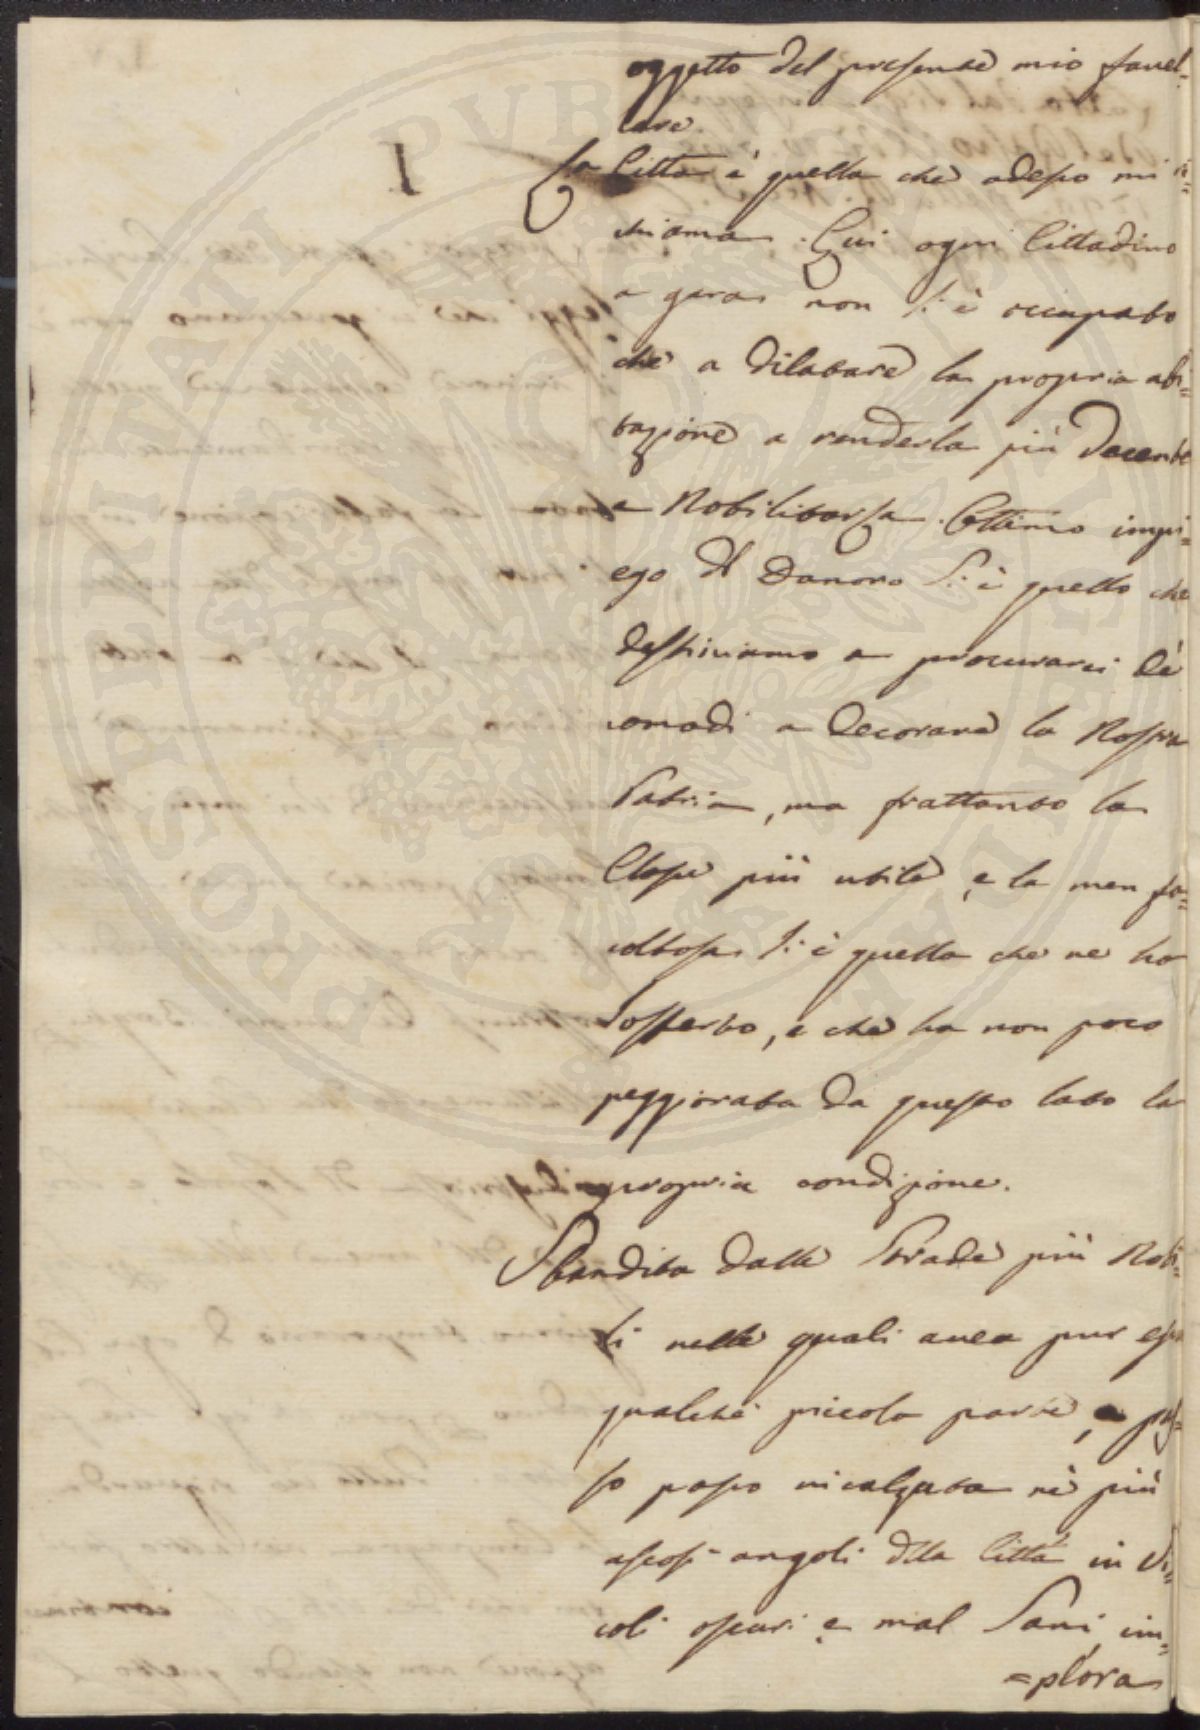 oggetto del presente mio favel=
lare.
La Città è quella che adesso mi ri=
chiama. Qui ogni Cittadino
a gara non si è occupato
che a dilatare la propria abi=
tazione a renderla più decente
e Nobilitarla. Ottimo impi=
ego di Danaro Si è quello che
destiniamo a procurarci de'
comodi a decorare la Nostra
Patria, ma frattanto la
Classe più utile, e la men fa=
coltosa si è quella che ne ha
sofferto, e che ha non poco
peggiorata da questo lato la
propria condizione.
Sbandita dalle Strade più Nobi=
li nelle quali avea pur essa
qualche piccola parte, e pas=
so passo incalzata nè più
ascosi angoli della Città in Vi=
coli oscuri e mal Sani, im=
=plora
PROSPERITATI PUBLICAE AUGENDAE